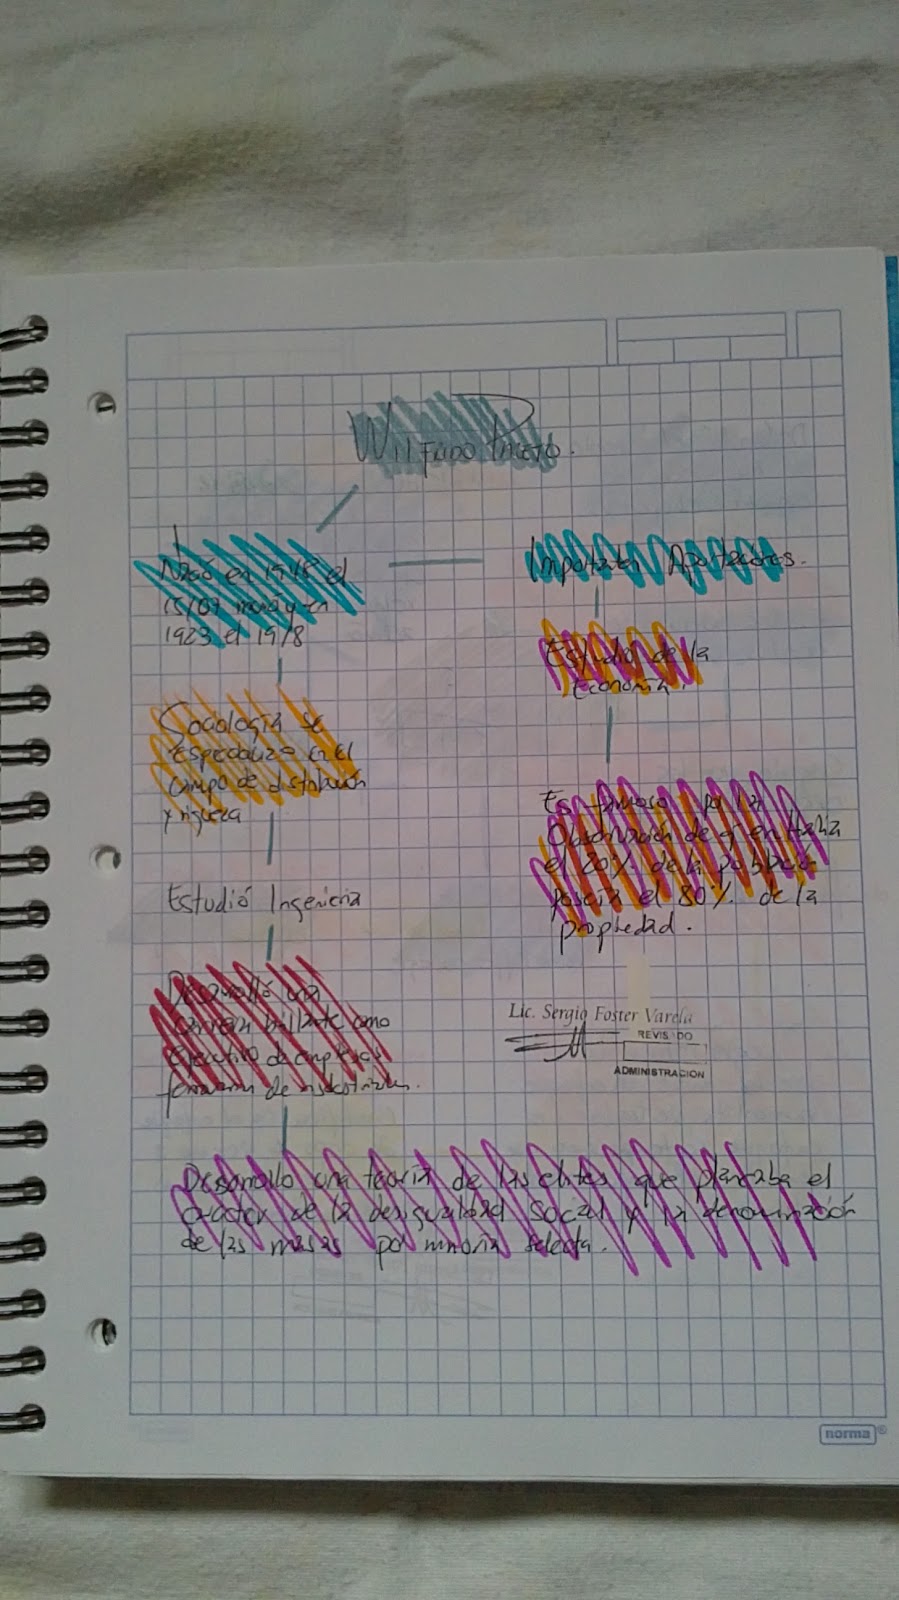 Wilfrido Pareto.
Nació en 1948 el
15/07 murió y en
1923 el 19/8
Sociología se
especializa en el
campo de distribución
y riqueza
Estudió Ingenieria
Desarrolló una
carrera brillante como
ejecutivo de empresas
de industriales.
Importaten Aportaciones.
Estudios de la
Economía.
Es famoso por la
Observación de q' en Italia
el 20% de la población
poseía el 80% de la
propiedad.
Lic. Sergio Foster Varela
REVISADO
ADMINISTRACION
Desarrollo una teoría de las elites que planteaba el
caracter de la desigualdad social y la denominación
de las masas por minoria selecta.
norma®